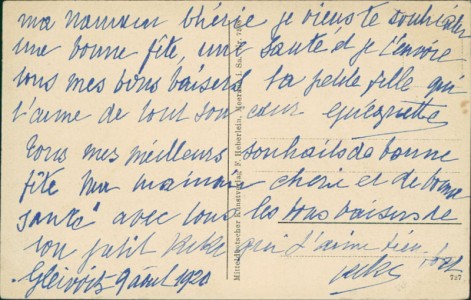 ma maman chérie je viens te souhaiter
une bonne fête, une santé et je t'envoie
tous mes bons baisers ta petite fille qui
t'aime de tout son cœur
Tous mes meilleurs souhaits de bonne
fête ma maman cherie et de bonne
santé avec tous les bons baisers de
ton petit qui t'aime bien fort
Gleiwitz 9 août 1920
Mitteldeutscher Kunstverlag, F. Häberlein, Meerane i. Sa.
727